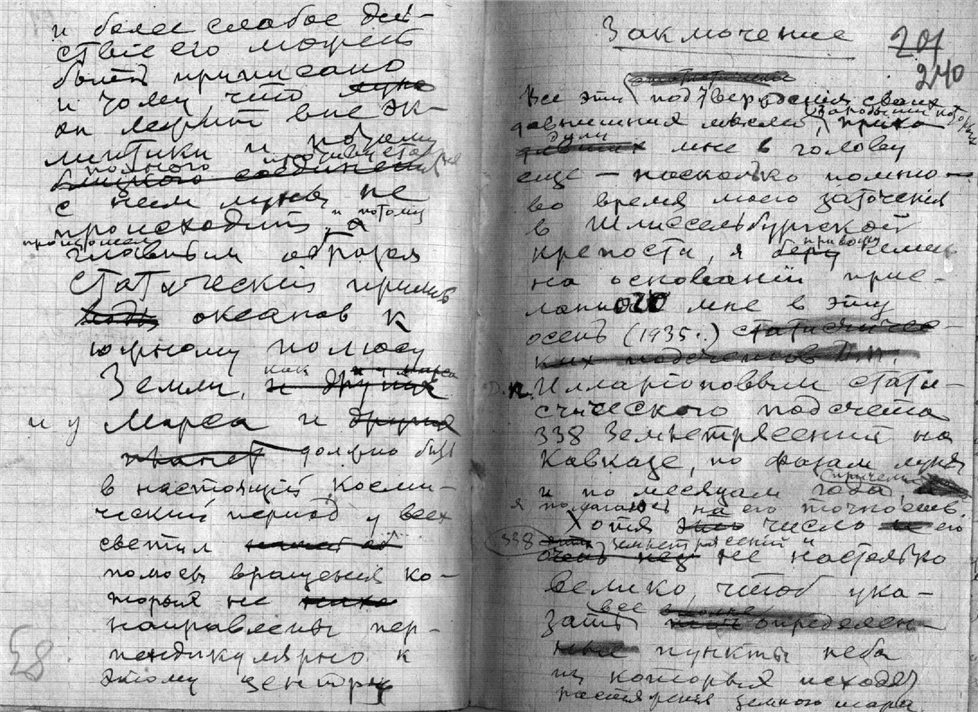 и более слабое дей-
ствие его может
быть приписано
и тому что луна
он лежит вне эк-
липтики и потому
полного противустоя
близкого соединения
с ней луны не
происходит, а и потому
главным образом
статический прилив
воды океанов к
южному полюсу
Земли, как и у Марса
и других
и у Марса и других
планет должно быть
в настоящий косми-
ческий период у всех
светил
полюсы вращения ко-
торых не
направлены пер-
пендикулярно к
этому центру
83
Заключение
201
240
Все эти подтверждения своих
давнишних мыслей, зародыши которых
приходили мне в голову
еще — насколько помню —
во время моего заточения
в Шлиссельбургской
крепости, я беру привожу лишь
на основании прис-
ланного мне в эту
осень (1935 г.) статистичес-
ких подсчетов
Д.П. Илларионовым стати-
стического подсчета
338 Землетрясений на
Кавказе, по фазам луны
и по месяцам года, причем
я полагаюсь на его точность.
Хотя число его
338 землетрясений и
очень не настолько
велико, чтоб ука-
зать все определен-
ные пункты неба
из которых исходят
растяжения земного шара